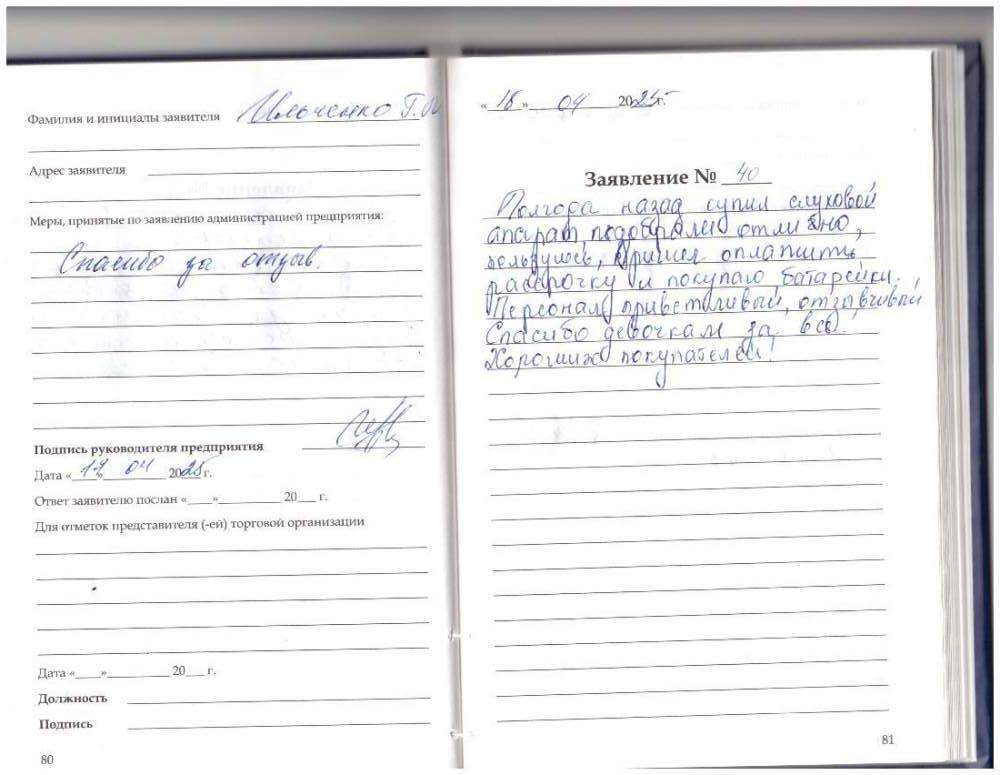 Фамилия и инициалы заявителя Ильченко Г.
Адрес заявителя
Меры, принятые по заявлению администрацией предприятия:
Спасибо за отзыв.
Подпись руководителя предприятия
Дата «17» 04 2025 г.
Ответ заявителю послан «___»__________ 20___ г.
Для отметок представителя (-ей) торговой организации
Дата «___»__________ 20___ г.
Должность
Подпись
80
«16» 04 2025г.
Заявление № 40
Полгода назад купил слуховой
апарат, подобрали отлично,
пользуюсь, пришел оплатить
рассрочку и покупаю батарейки.
Персонал приветливый, отзывчивый
Спасибо девочкам за всё!
Хороших покупателей!
81